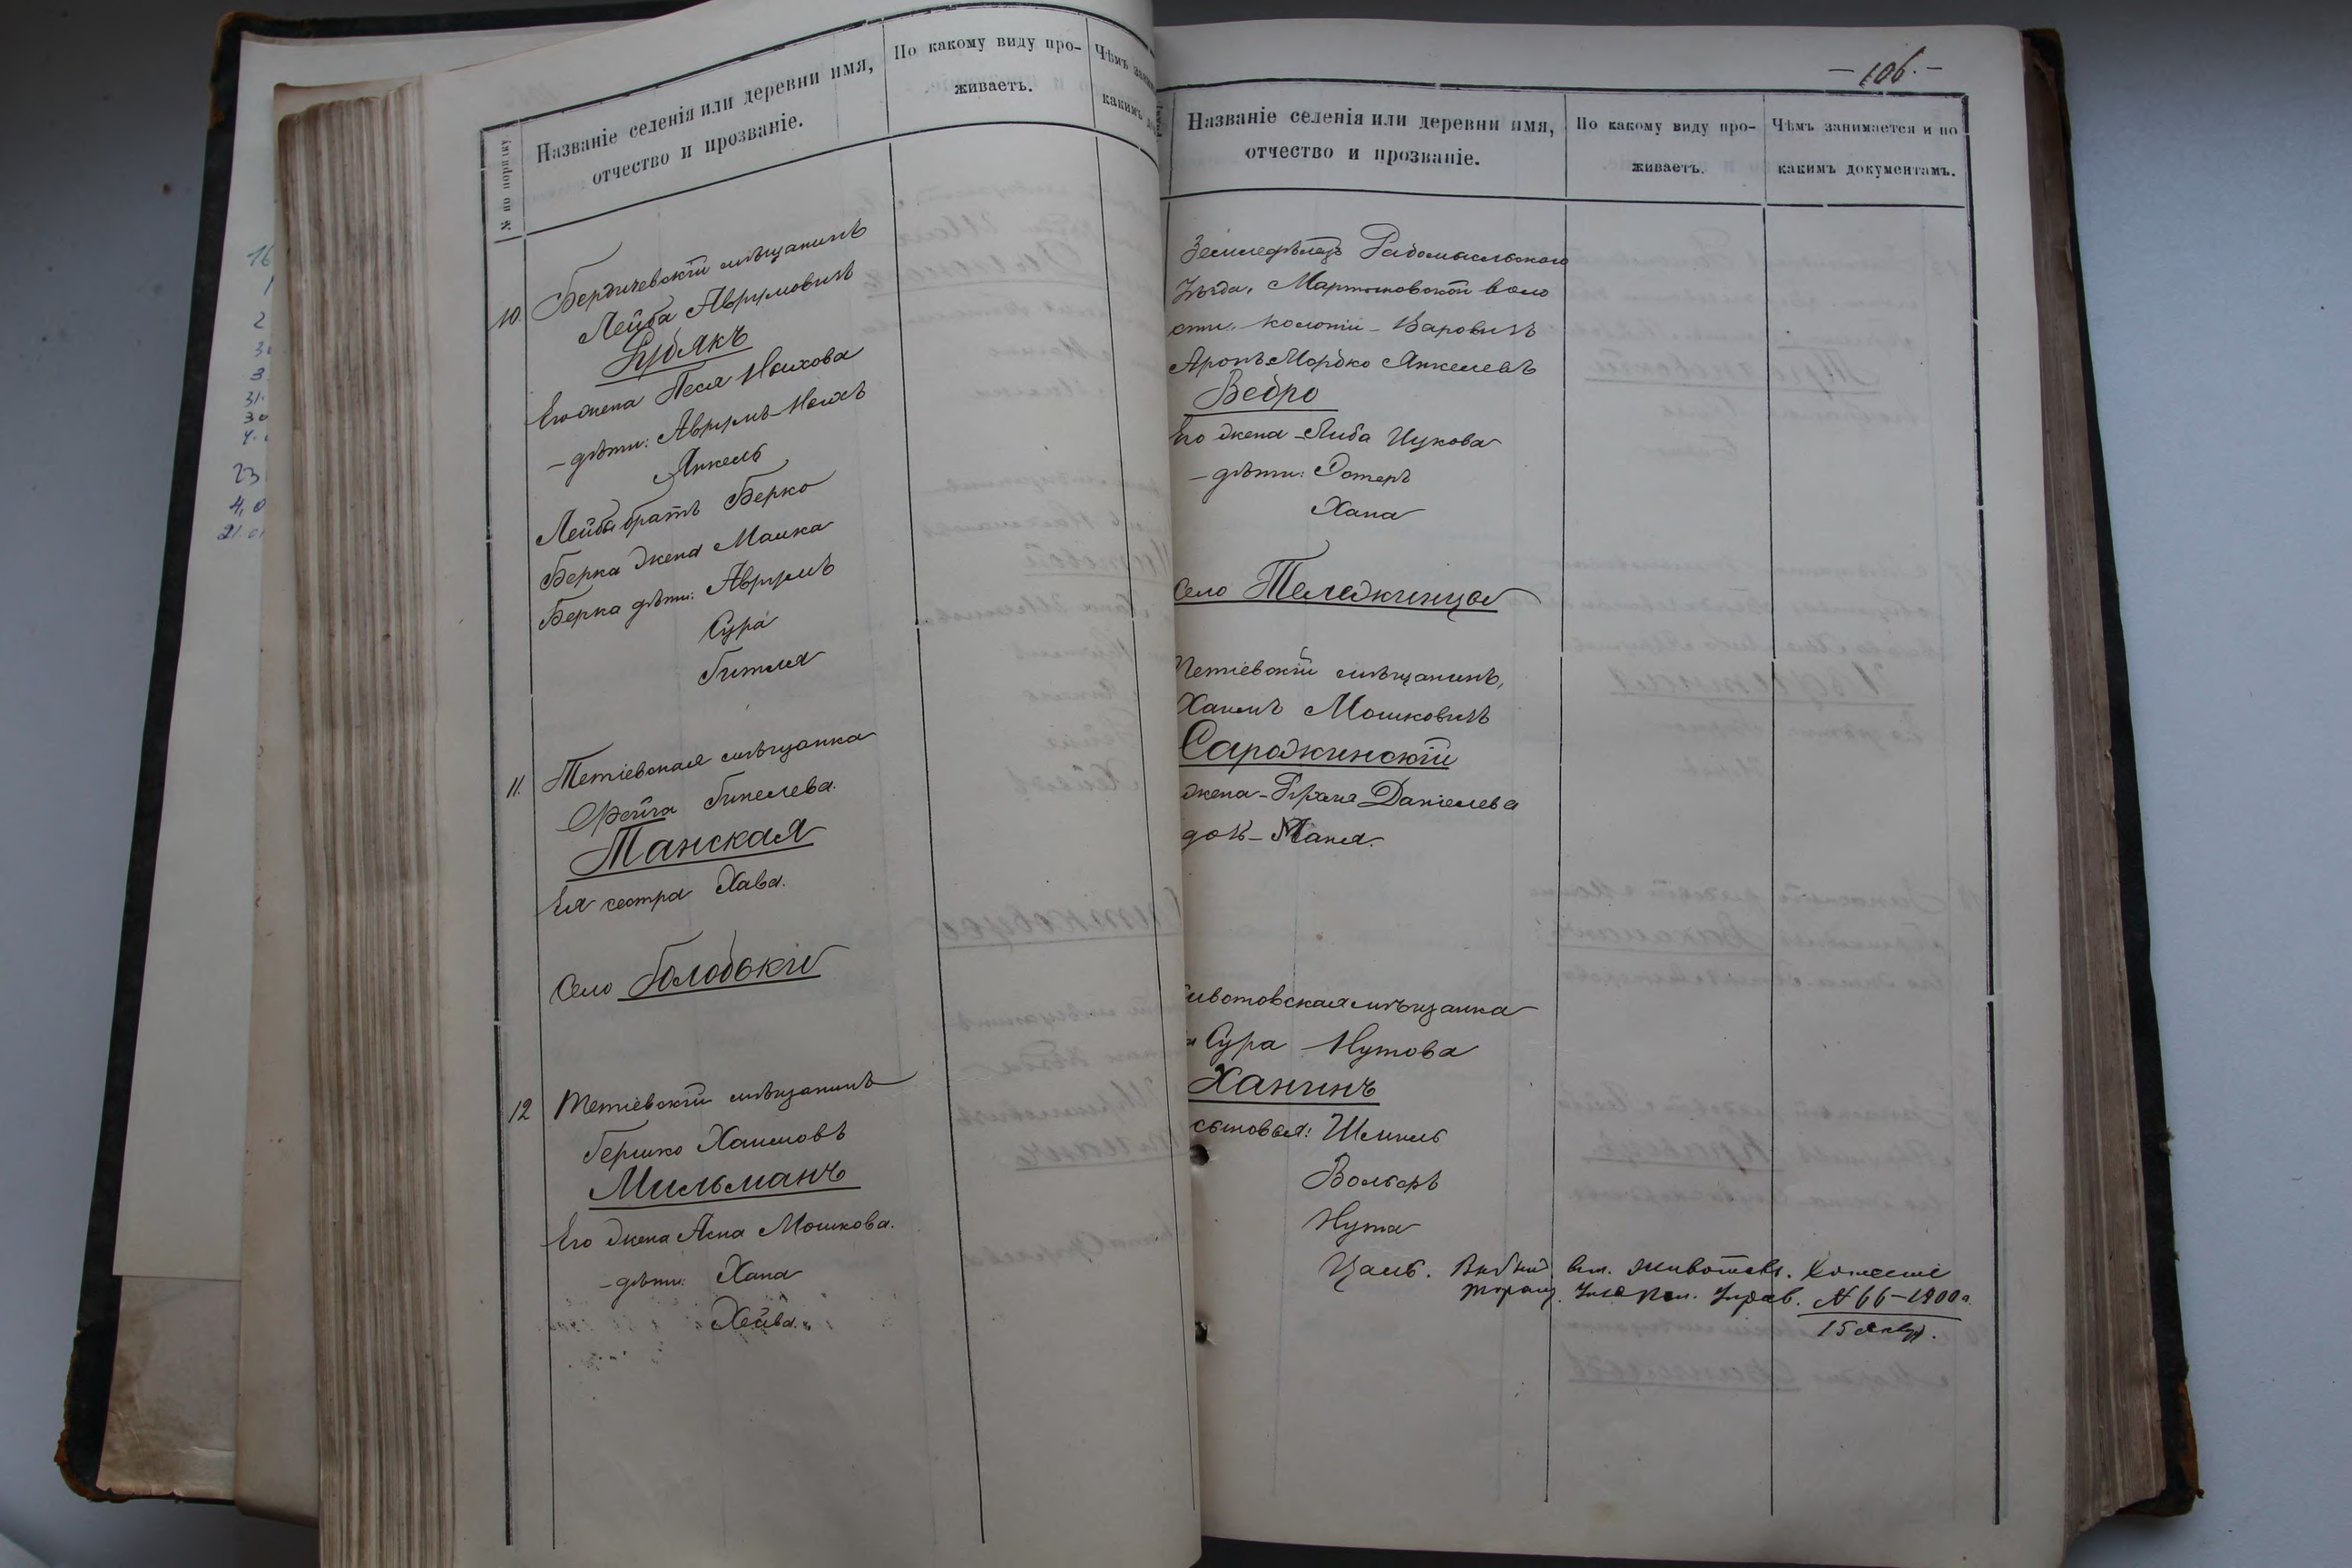 № по порядку.
Названіе селенія или деревни имя,
отчество и прозваніе.
По какому виду про-
живаетъ.
Чѣмъ
какимъ
10. Бердичевскій мѣщанинъ
Лейба Аврумовичъ
Кубякъ
Его жена Песя Ноихова
- дѣти: Аврумъ-Ноихъ
Янкель
Лейбы братъ Берко
Берка жена Малка
Берка дѣти: Аврумъ
Сура
Гитля
11. Тетіевская мѣщанка
Фейга Гипелева.
Танская
Ея сестра Хава.
Село Голодьки
12 Тетіевскій мѣщанинъ
Гершко Хаимовъ
Мильманъ
Его жена Асна Мошкова.
- дѣти: Хана
Хейва.
- 106. -
Названіе селенія или деревни имя,
отчество и прозваніе.
По какому виду про-
живаетъ.
Чѣмъ занимается и по
какимъ документамъ.
Земледѣлецъ Радомысльскаго
Уѣзда, Мартыновской воло
сти, колоніи - Варовичъ
Аронъ-Мордко Янкелевъ
Ведро
Его жена - Либа Ицкова
- дѣти: Эстеръ
Хана
Село Тележинцы
Тетіевскій мѣщанинъ,
Хаимъ Мошковичъ
Саражинскій
жена - Даніелева
дочь - Маня.
ивотовская мѣщанка
Сура Нутова
Ханинъ
сыновья: Шмиль
Вольфъ
Нута
вт. Животовъ.
№ 66-1900 г.
15 Янвр.